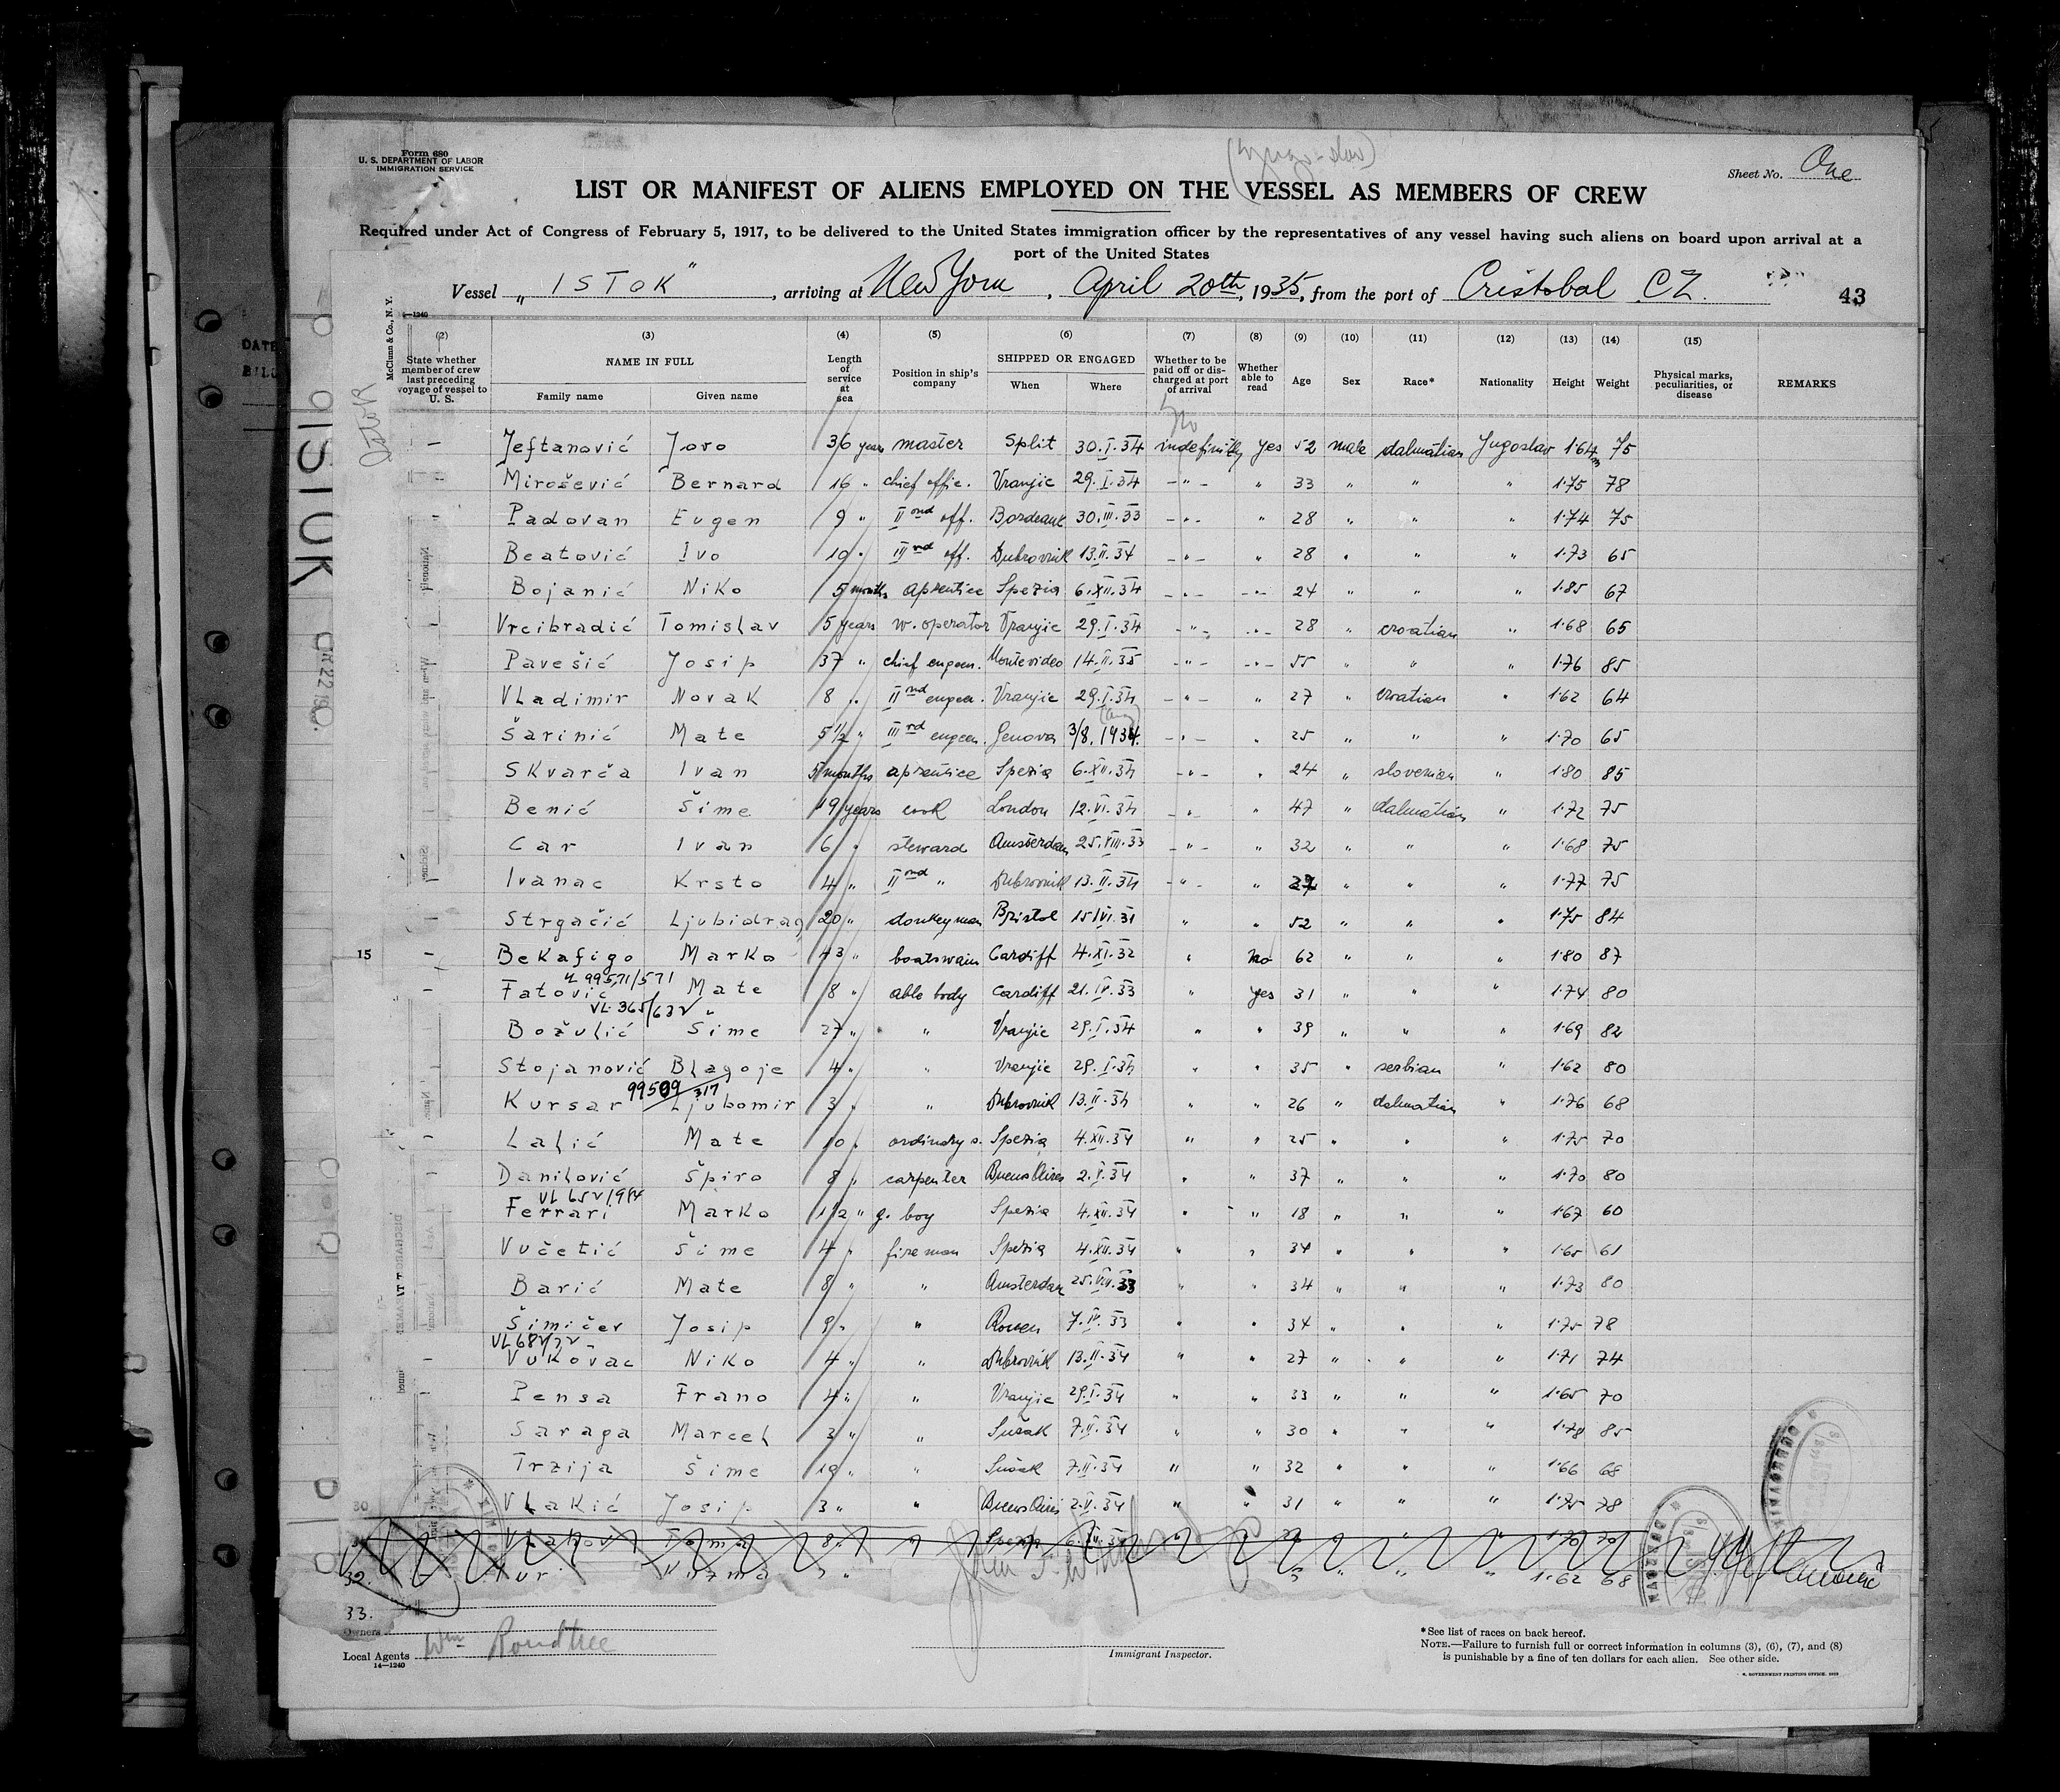 Form 680
U. S. DEPARTMENT OF LABOR
IMMIGRATION SERVICE
Sheet No. One
LIST OR MANIFEST OF ALIENS EMPLOYED ON THE VESSEL AS MEMBERS OF CREW
Required under Act of Congress of February 5, 1917, to be delivered to the United States immigration officer by the representatives of any vessel having such aliens on board upon arrival at a
port of the United States
Vessel „ISTOK", arriving at New York, April 20th, 1935, from the port of Cristobal C.Z.
43
(2) (3) (4) (5) (6) (7) (8) (9) (10) (11) (12) (13) (14) (15)
State whether member of crew last preceding voyage of vessel to U. S. NAME IN FULL Family name Given name Length of service at sea Position in ship's company SHIPPED OR ENGAGED When Where Whether to be paid off or discharged at port of arrival Whether able to read Age Sex Race* Nationality Height Weight Physical marks, peculiarities, or disease REMARKS
No
– Jeftanović Jovo 36 years master Split 30.I.34 indefinitly yes 52 male dalmatian Jugoslav 1.64m 75
– Mirošević Bernard 16 " chief offic. Vranjic 29.I.34 –"– " 33 " " " 1.75 78
Padovan Eugen 9 " IInd off. Bordeaux 30.III.33 –"– " 28 " " " 1.74 75
Beatović Ivo 10 " IIIrd off. Dubrovnik 13.II.34 –"– " 28 " " " 1.73 65
Bojanić Niko 5 months aprentice Spezia 6.XII.34 –"– –"– 24 " " " 1.85 67
Vrcibradić Tomislav 5 years w. operator Vranjic 29.I.34 –"– –"– 28 " croatian " 1.68 65
Pavešić Josip 37 " chief engeen. Montevideo 14.II.35 –"– –"– 55 " " " 1.76 85
Vladimir Novak 8 " IInd engeen. Vranjic 29.I.34 –"– " 27 " croatian " 1.62 64
Šarinić Mate 5 1/2 " IIIrd engeen. Genova 3/8. 1934. –"– " 25 " " " 1.70 65
Skvarča Ivan 5 months aprentice Spezia 6.XII.34 –"– " 24 " slovenian " 1.80 85
Benić Šime 19 years cook London 12.VI.34 –"– " 47 " dalmatian " 1.72 75
Car Ivan 6 " steward Amsterdam 25.VIII.33 –"– " 32 " " " 1.68 75
Ivanac Krsto 4 " IInd " Dubrovnik 13.II.34 –"– " " " " 1.77 75
Strgačić Ljubidrag 20 " donkeyman Bristol 15.VI.31 " " 52 " " " 1.75 84
15 – Bekafigo Marko 43 " boatswain Cardiff 4.XI.32 " no 62 " " " 1.80 87
– Fatović Mate 8 " able body Cardiff 21.IV.33 " yes 31 " " " 1.74 80
Božulić Šime 27 " " Vranjic 29.I.34 " " 39 " " " 1.69 82
Stojanović Blagoje 4 " " Vranjic 29.I.34 " " 35 " serbian " 1.62 80
99509/317
Kursar Ljubomir 3 " " Dubrovnik 13.II.34 " " 26 " dalmatian " 1.76 68
Lalić Mate 10 " ordinary s. Spezia 4.XII.34 " " 25 " " " 1.75 70
Danilović Špiro 8 " carpenter Buenos Aires 2.V.34 " " 37 " " " 1.70 80
Ferrari Marko 1 1/2 " g. boy Spezia 4.XII.34 " " 18 " " " 1.67 60
Vučetić Šime 4 " fireman Spezia 4.XII.34 " " 34 " " " 1.65 61
Barić Mate 8 " " Amsterdam 25.VIII.33 " " 34 " " " 1.73 80
Šimičev Josip 9 " " Rouen 7.IV.33 " " 34 " " " 1.75 78
Vukovac Niko 4 " " Dubrovnik 13.II.34 " " 27 " " " 1.71 74
Pensa Frano 4 " " Vranjic 29.I.34 " " 33 " " " 1.65 70
Saraga Marcel 3 " " Sušak 7.II.34 " " 30 " " " 1.78 85
Trzija Šime 19 " " Sušak 7.II.34 " " 32 " " " 1.66 68
30 Vlakić Josip 3 " " Buenos Aires 2.V.34 " " 31 " " " 1.75 78
Toma 8 " " Spezia " " 1.70 70
32. Kuzma " " " 1.62 68
33.
Owners
Local Agents Wm Roundtree
14—1240
Immigrant Inspector.
*See list of races on back hereof.
NOTE.—Failure to furnish full or correct information in columns (3), (6), (7), and (8)
is punishable by a fine of ten dollars for each alien. See other side.